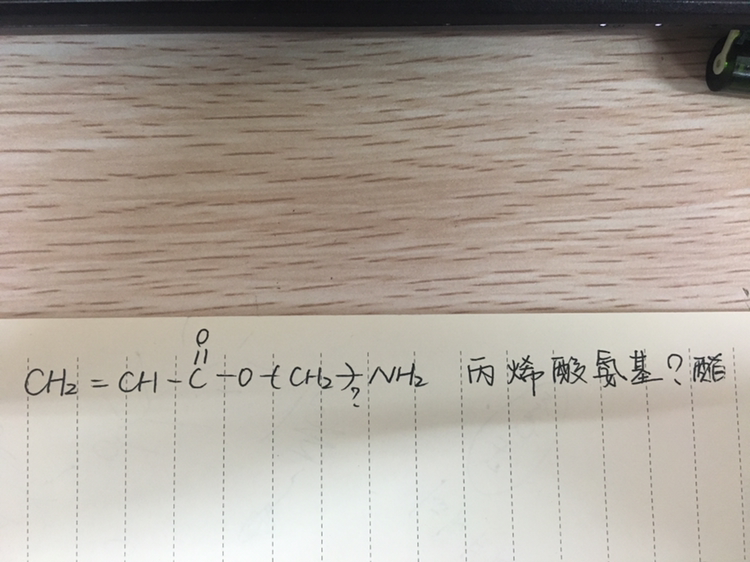 CH₂=CH-C(=O)-O-(CH₂)?-NH₂ 丙烯酸氨基?酯